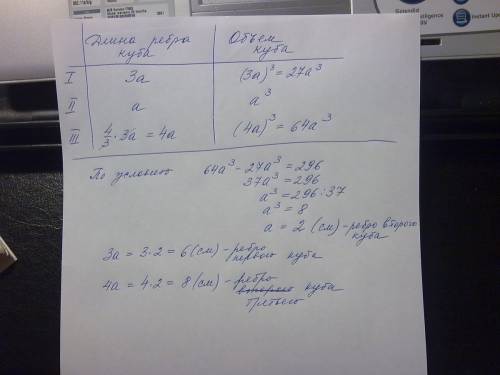 Длина ребра куба | Объем куба
I | 3a | (3a)³ = 27a³
II | a | a³
III | 4/3 · 3a = 4a | (4a)³ = 64a³
По условию 64a³ - 27a³ = 296
37a³ = 296
a³ = 296 : 37
a³ = 8
a = 2 (см) - ребро второго куба
3a = 3·2 = 6 (см) - ребро первого куба
4a = 4·2 = 8 (см) - ребро второго куба
третьего